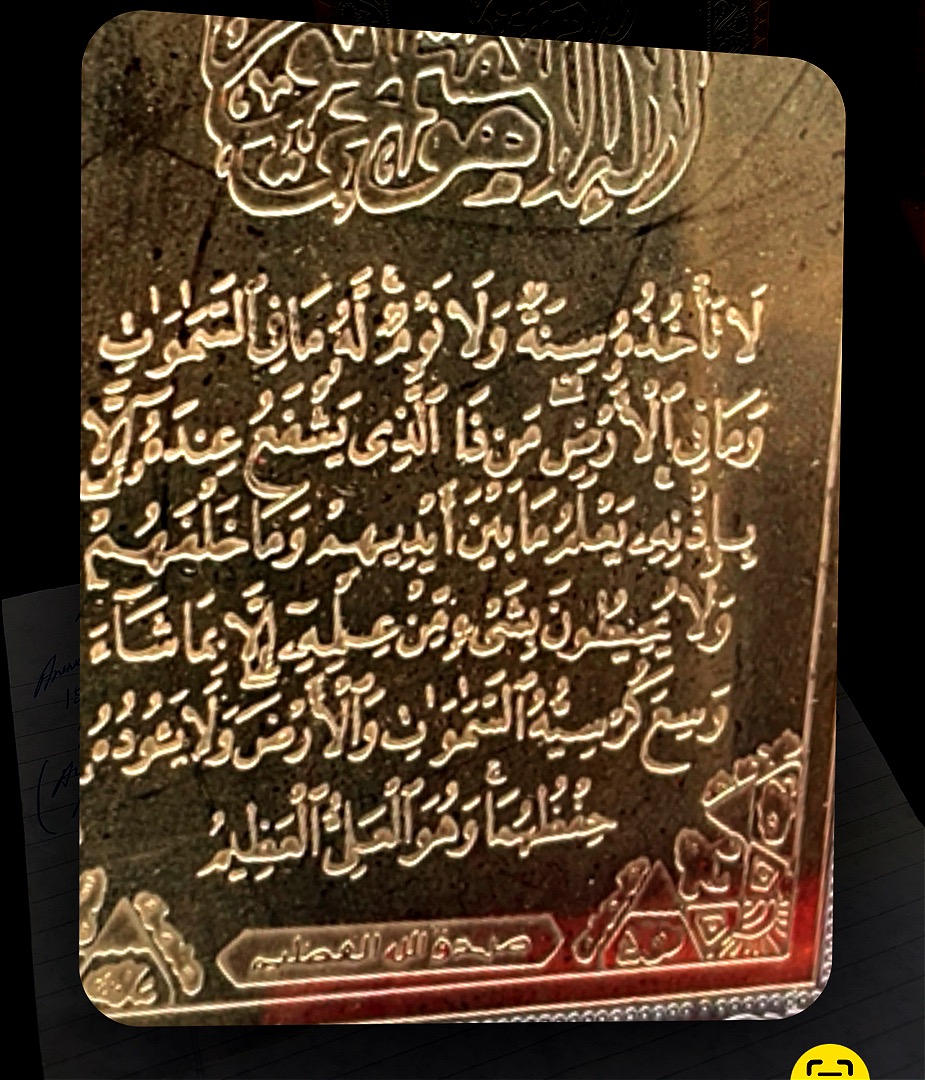 الله لا إله إلا هو الحي القيوم
لَا تَأْخُذُهُ سِنَةٌ وَلَا نَوْمٌ ۚ لَهُ مَا فِي السَّمٰوٰتِ
وَمَا فِي الْأَرْضِ ۗ مَن ذَا الَّذِي يَشْفَعُ عِندَهُ إِلَّا
بِإِذْنِهِ يَعْلَمُ مَا بَيْنَ أَيْدِيهِمْ وَمَا خَلْفَهُمْ
وَلَا يُحِيطُونَ بِشَيْءٍ مِّنْ عِلْمِهِ إِلَّا بِمَا شَاءَ
وَسِعَ كُرْسِيُّهُ السَّمٰوٰتِ وَالْأَرْضَ وَلَا يَـُٔودُهُ
حِفْظُهُمَا ۚ وَهُوَ الْعَلِيُّ الْعَظِيمُ
صدق الله العظيم